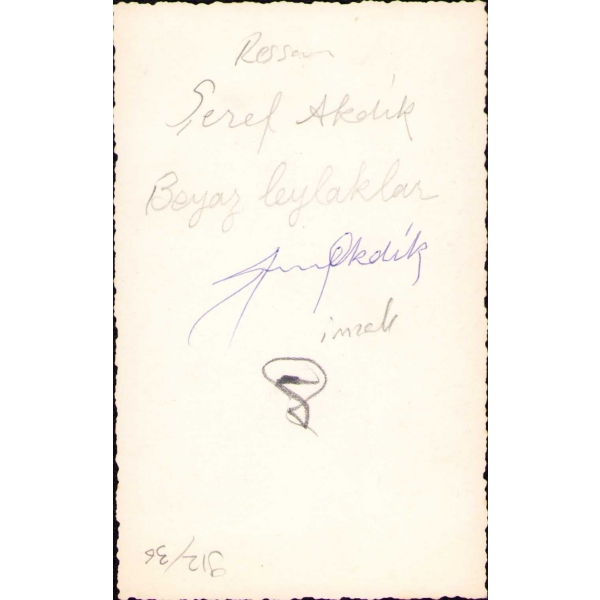 Ressam
Şeref Akdik
Beyaz leylaklar
Akdik
imzalı
912/36